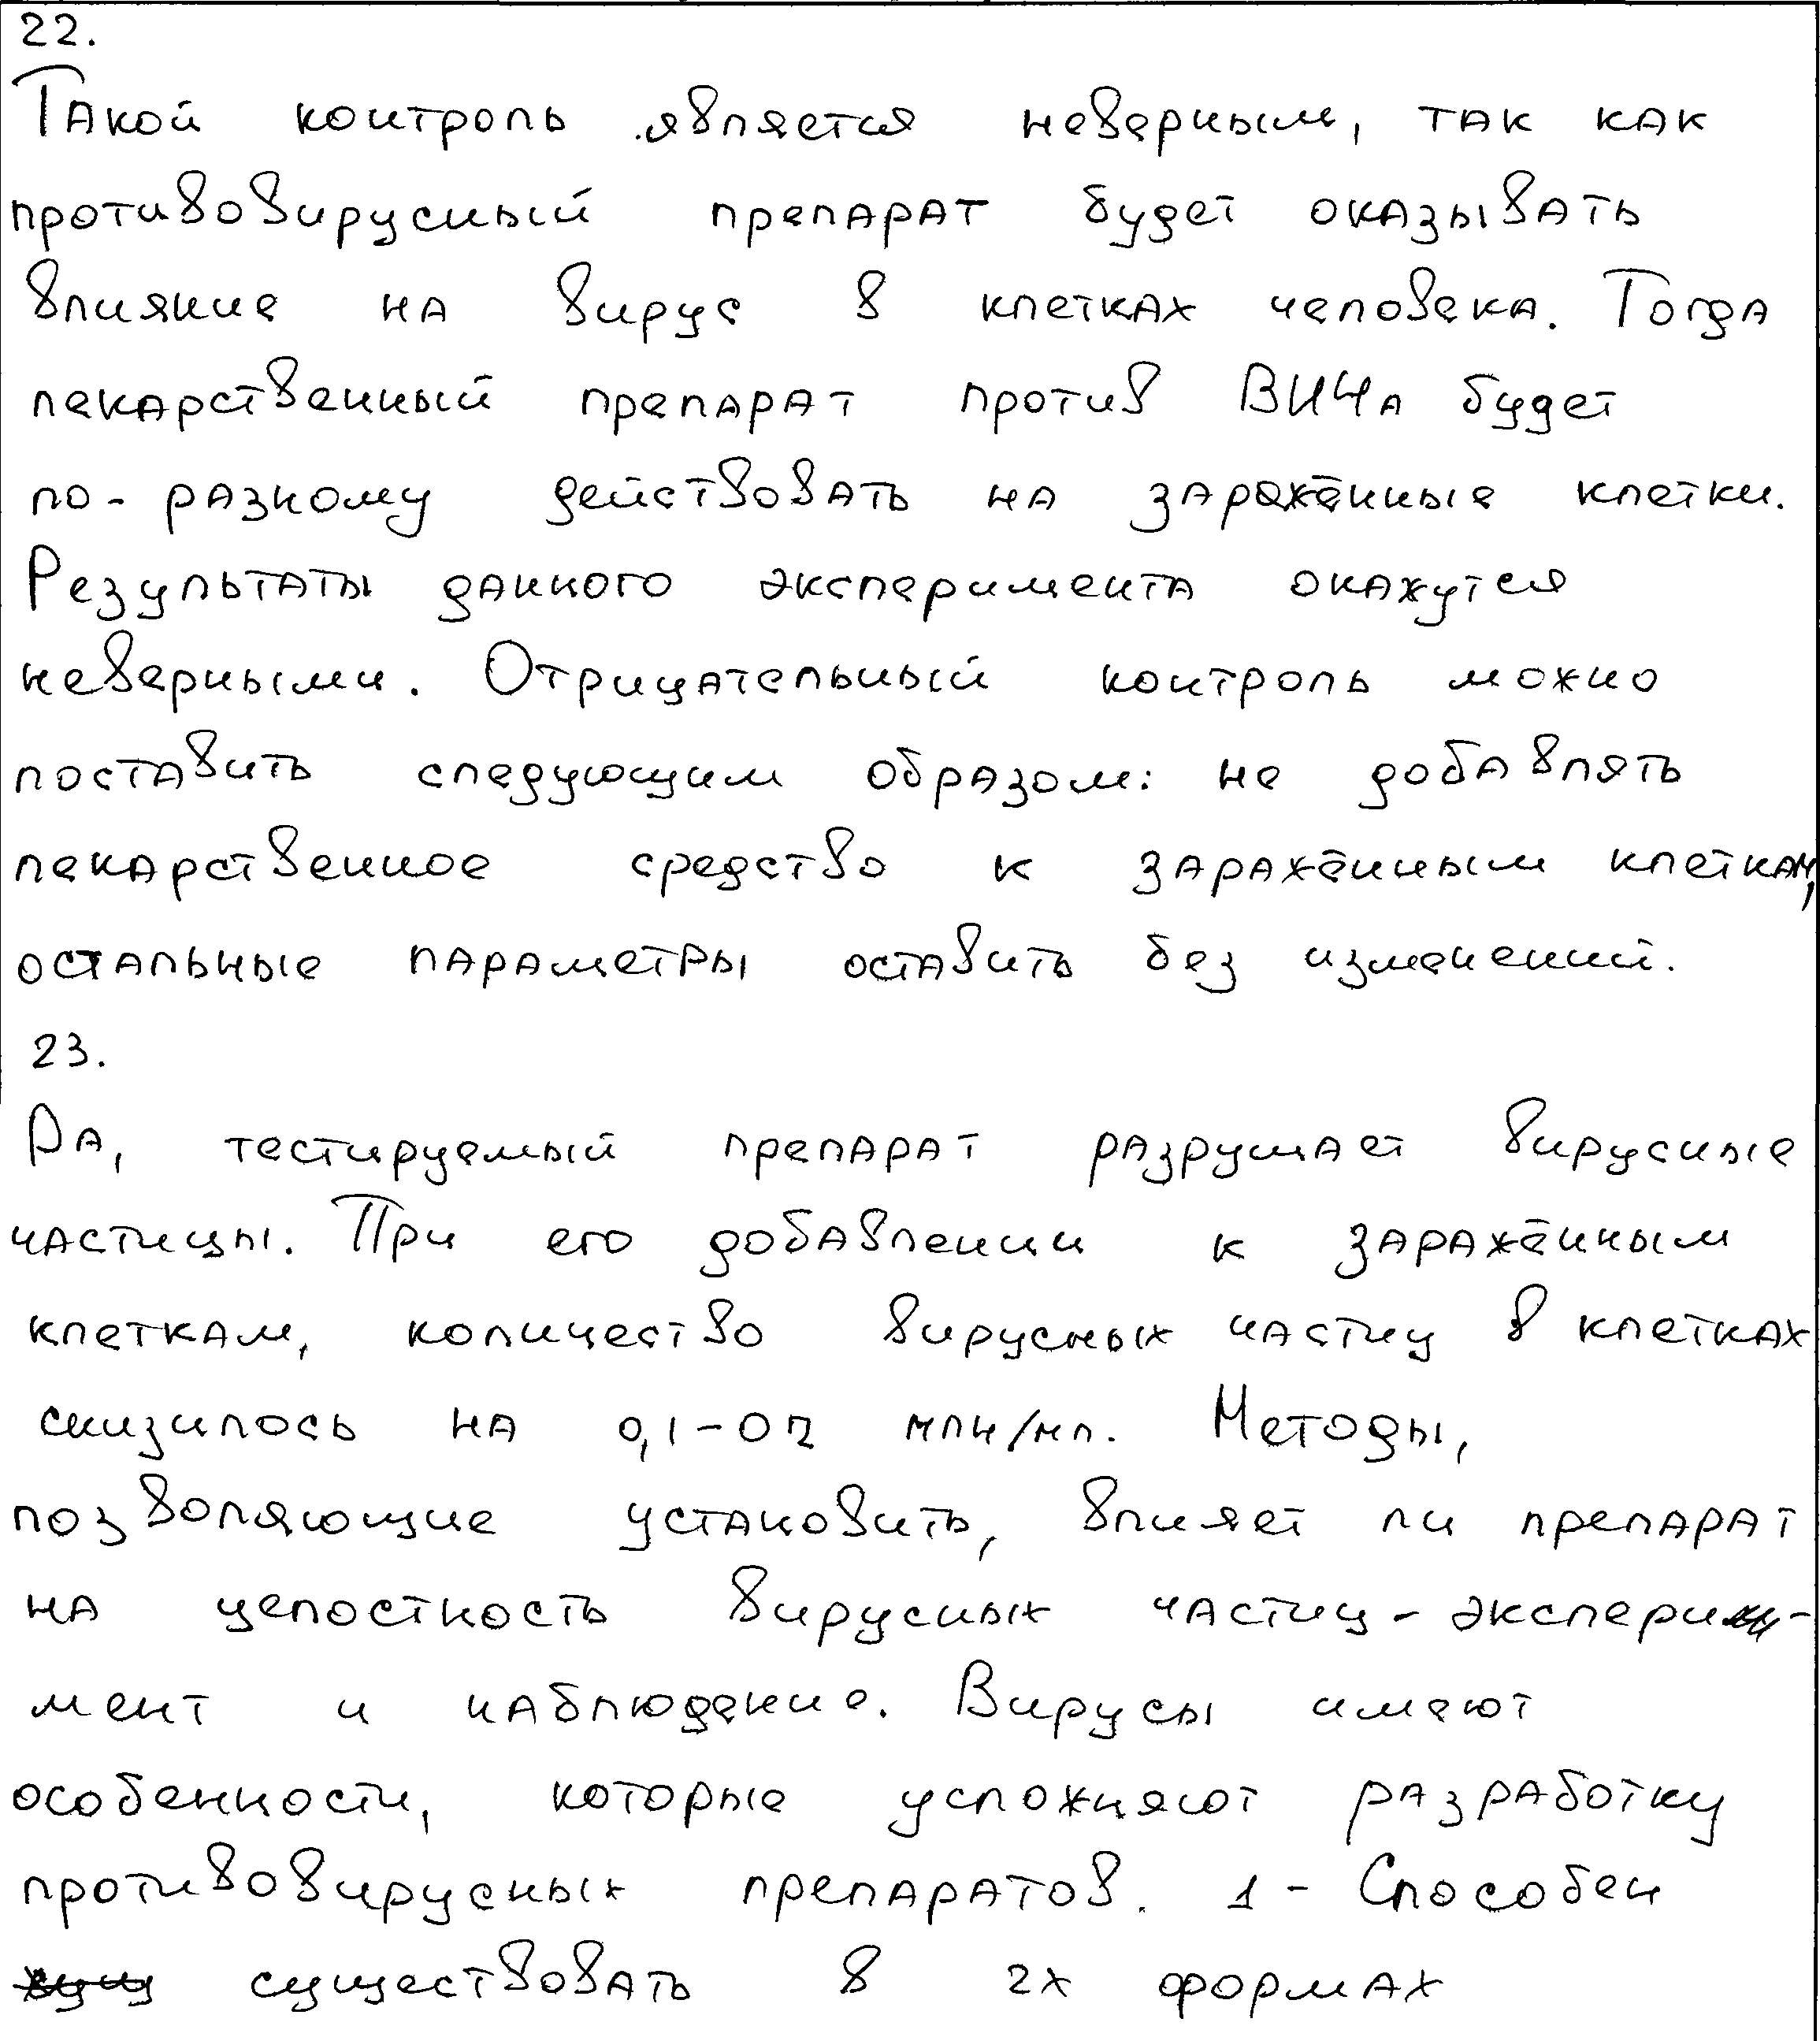 22.
Такой контроль является неверным, так как
противовирусный препарат будет оказывать
влияние на вирус в клетках человека. Тогда
лекарственный препарат против ВИЧа будет
по-разному действовать на заражённые клетки.
Результаты данного эксперимента окажутся
неверными. Отрицательный контроль можно
поставить следующим образом: не добавлять
лекарственное средство к заражённым клеткам,
остальные параметры оставить без изменений.
23.
Да, тестируемый препарат разрушает вирусные
частицы. При его добавлении к заражённым
клеткам, количество вирусных частиц в клетках
снизилось на 0,1-02 млн/мл. Методы,
позволяющие установить, влияет ли препарат
на целостность вирусных частиц - экспери-
мент и наблюдение. Вирусы имеют
особенности, которые усложняют разработку
противовирусных препаратов. 1 - Способен
существовать в 2х формах